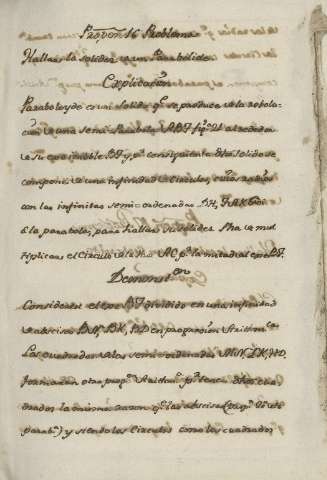 Propon 16 Problema
Hallar la solidez de un Paraboloide
Explicacion
Paraboloyde es un solido qe se produce de la rotola-
cion de una semi-Parabola ABF figa 21 alrededor
de su exe inmoble BF, y pr consiguiente dho solido se
compone de una infinidad de circulos, cuios radios
con las infinitas semi-ordenadas
de la parabola, para hallar su solidez se ha de mul
tiplicar el circulo de la AC pr la mitad del exe
Demonston
Considerese el exe dividido en una infinidad
de abscisas BN, BK, BD en proporcion Arithmca
Los quadrados de las semi ordenadas MN, IK, HD,
formaran otra progn Arithmca pr tener dhos qua
drados la misma razon qe las abscisas
parabla) y siendo los Circulos como los cuadrados